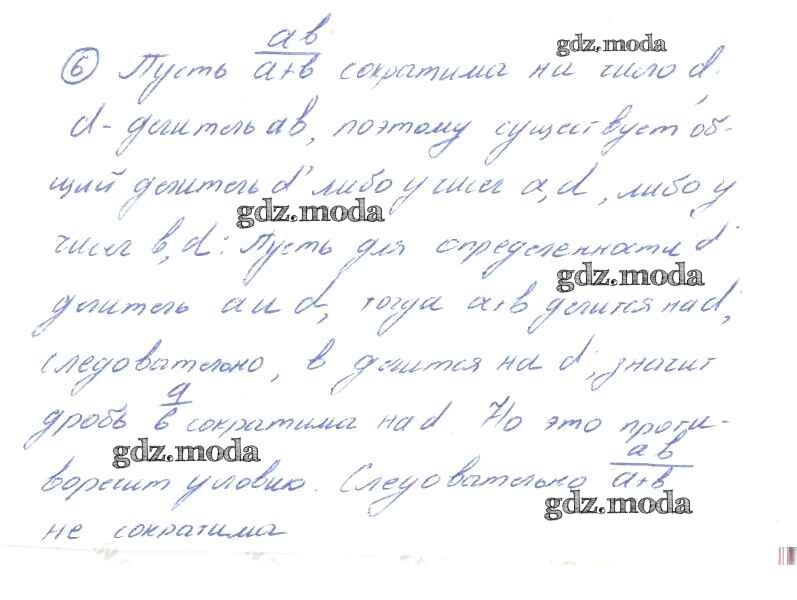 ab
gdz.moda
6 Пусть a+b сократима на число d,
d - делитель ab, поэтому существует об-
щий делитель d' либо у чисел a, d, либо у
gdz.moda
чисел b, d. Пусть для определенности d'
gdz.moda
делитель a и d, тогда a+b делится на d',
следовательно, b делится на d', значит
a
дробь b сократима на d'. Но это проти-
gdz.moda
ab
воречит условию. Следовательно a+b
gdz.moda
не сократима